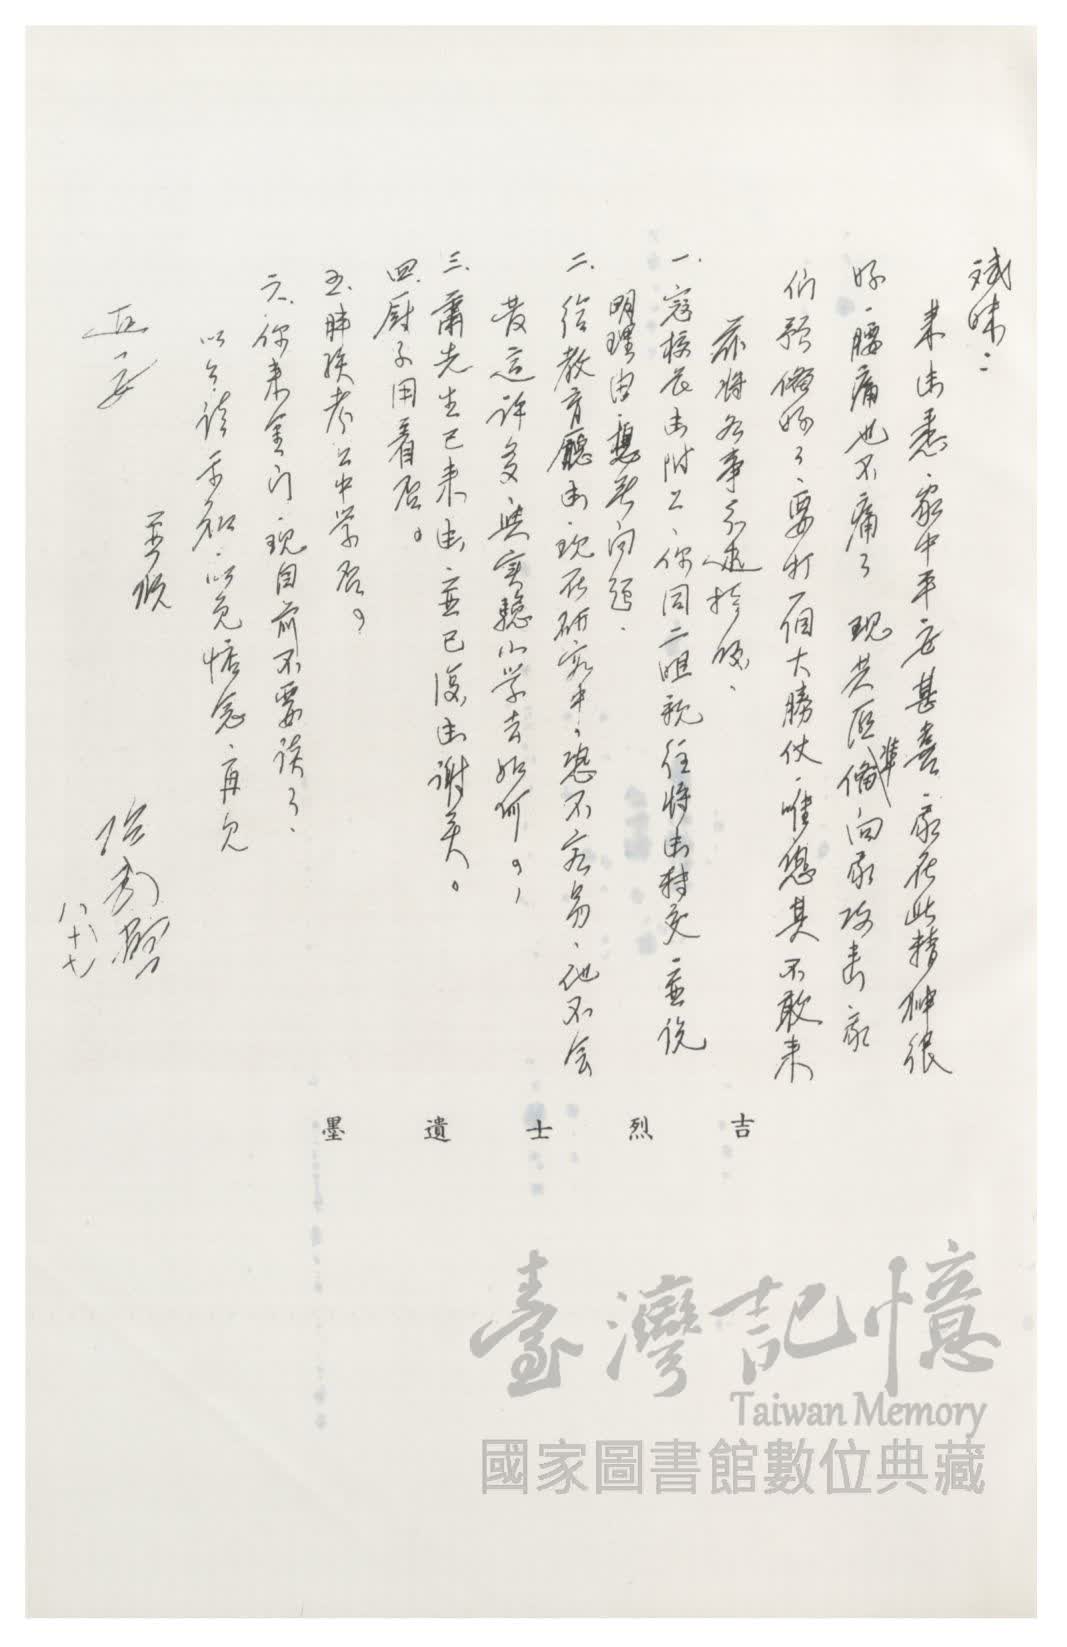 斌妹：
來函悉，家中平安甚喜，我在此精神很
好，腰痛也不痛了 現共匪準備向我攻擊，我
們預備好了，要打一個大勝仗，唯恐其不敢來
茲將各事示述於後、
一、寇校長函附上、你同二姐親往將函轉交，並說
明理由，想無問題．
二、給教育廳函，現在研究中，恐不容易，他不會
發這許多，與實驗小學去如何？
三、蕭先生已來函，並已復函謝矣。
四、廚子用着否。
五、肺孩考上中學否？
六、你來金門，現目前不要談了、
以上諸示知，以免惦念，再見
並頌
近安
八十七
吉烈士遺墨
臺灣記憶
Taiwan Memory
國家圖書館數位典藏